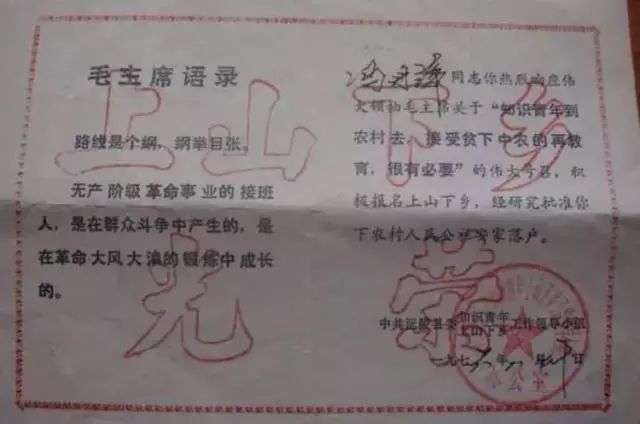 上山下乡
光荣
毛主席语录
路线是个纲,纲举目张。
无产阶级革命事业的接班
人,是在群众斗争中产生的,是
在革命大风大浪的锻炼中成长
的。
同志你热烈响应伟
大领袖毛主席关于“知识青年到
农村去,接受贫下中农的再教
育,很有必要”的伟大号召,积
极报名上山下乡,经研究批准你
下农村人民公社安家落户。
中共沅陵县委知识青年上山下乡工作领导小组
一九七 年 月 日
办公室